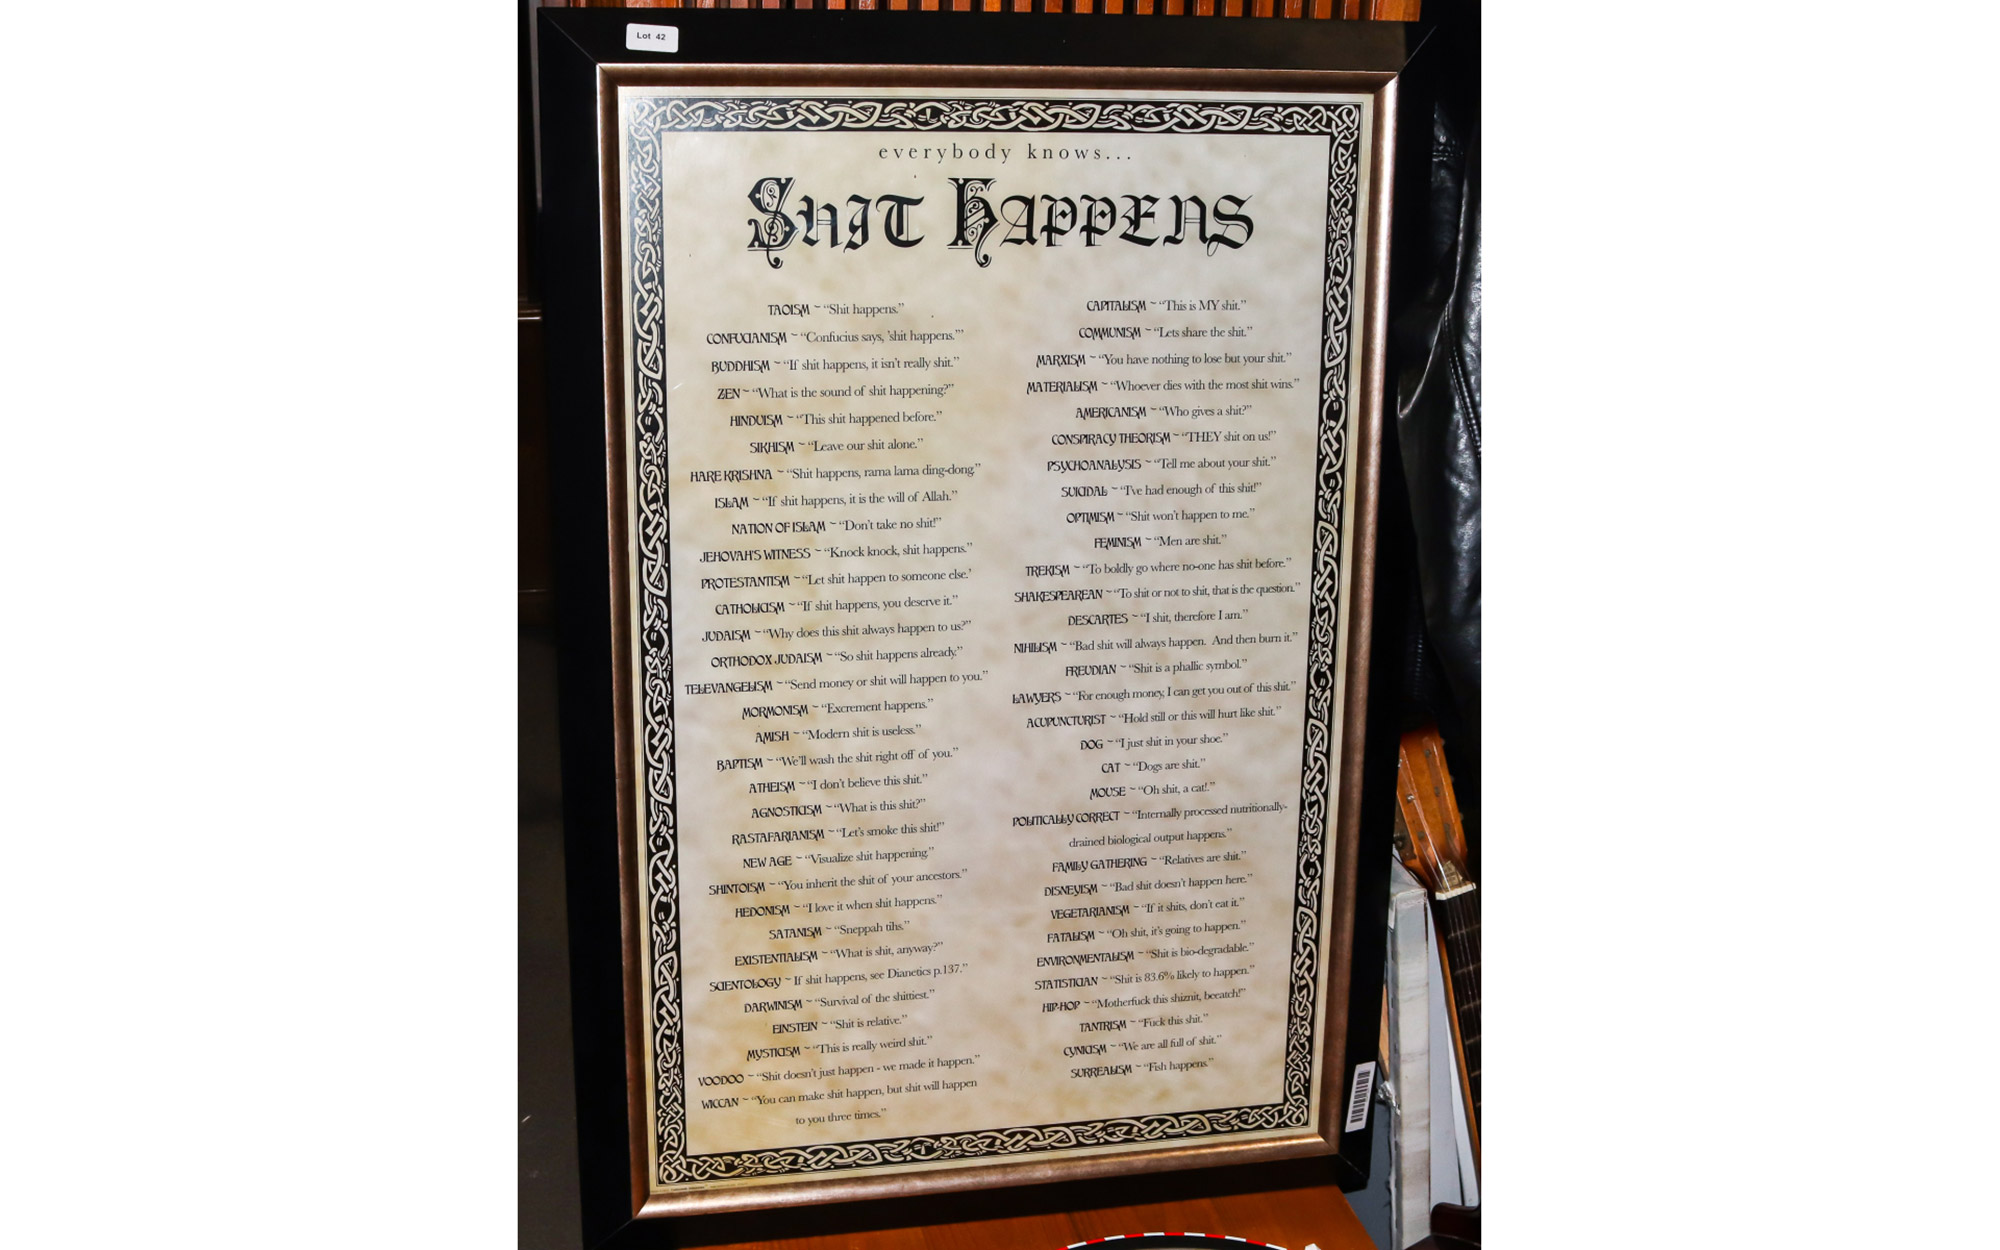 Lot 42
everybody knows...
Shit Happens
TAOISM ~ “Shit happens.”
CONFUCIANISM ~ “Confucius says, 'shit happens.'”
BUDDHISM ~ “If shit happens, it isn't really shit.”
ZEN ~ “What is the sound of shit happening?”
HINDUISM ~ “This shit happened before.”
SIKHISM ~ “Leave our shit alone.”
HARE KRISHNA ~ “Shit happens, rama lama ding-dong.”
ISLAM ~ “If shit happens, it is the will of Allah.”
NATION OF ISLAM ~ “Don't take no shit!”
JEHOVAH'S WITNESS ~ “Knock knock, shit happens.”
PROTESTANTISM ~ “Let shit happen to someone else.'
CATHOLICISM ~ “If shit happens, you deserve it.”
JUDAISM ~ “Why does this shit always happen to us?”
ORTHODOX JUDAISM ~ “So shit happens already.”
TELEVANGELISM ~ “Send money or shit will happen to you.”
MORMONISM ~ “Excrement happens.”
AMISH ~ “Modern shit is useless.”
BAPTISM ~ “We'll wash the shit right off of you.”
ATHEISM ~ “I don't believe this shit.”
AGNOSTICISM ~ “What is this shit?”
RASTAFARIANISM ~ “Let's smoke this shit!”
NEW AGE ~ “Visualize shit happening.”
SHINTOISM ~ “You inherit the shit of your ancestors.”
HEDONISM ~ “I love it when shit happens.”
SATANISM ~ “Sneppah tihs.”
EXISTENTIALISM ~ “What is shit, anyway?”
SCIENTOLOGY ~ If shit happens, see Dianetics p.137.”
DARWINISM ~ “Survival of the shittiest.”
EINSTEIN ~ “Shit is relative.”
MYSTICISM ~ “This is really weird shit.”
VOODOO ~ “Shit doesn't just happen - we made it happen.”
WICCAN ~ “You can make shit happen, but shit will happen
to you three times.”
CAPITALISM ~ “This is MY shit.”
COMMUNISM ~ “Lets share the shit.”
MARXISM ~ “You have nothing to lose but your shit.”
MATERIALISM ~ “Whoever dies with the most shit wins.”
AMERICANISM ~ “Who gives a shit?”
CONSPIRACY THEORISM ~ “THEY shit on us!”
PSYCHOANALYSIS ~ “Tell me about your shit.”
SUICIDAL ~ “I've had enough of this shit!”
OPTIMISM ~ “Shit won't happen to me.”
FEMINISM ~ “Men are shit.”
TREKISM ~ “To boldly go where no-one has shit before.”
SHAKESPEAREAN ~ “To shit or not to shit, that is the question.”
DESCARTES ~ “I shit, therefore I am.”
NIHILISM ~ “Bad shit will always happen. And then burn it.”
FREUDIAN ~ “Shit is a phallic symbol.”
LAWYERS ~ “For enough money, I can get you out of this shit.”
ACUPUNCTURIST ~ “Hold still or this will hurt like shit.”
DOG ~ “I just shit in your shoe.”
CAT ~ “Dogs are shit.”
MOUSE ~ “Oh shit, a cat!.”
POLITICALLY CORRECT ~ “Internally processed nutritionally-
drained biological output happens.”
FAMILY GATHERING ~ “Relatives are shit.”
DISNEYISM ~ “Bad shit doesn't happen here.”
VEGETARIANISM ~ “If it shits, don't eat it.”
FATALISM ~ “Oh shit, it's going to happen.”
ENVIRONMENTALISM ~ “Shit is bio-degradable.”
STATISTICIAN ~ “Shit is 83.6% likely to happen.”
HIP-HOP ~ “Motherfuck this shiznit, beeatch!”
TANTRISM ~ “Fuck this shit.”
CYNICISM ~ “We are all full of shit.”
SURREALISM ~ “Fish happens.”